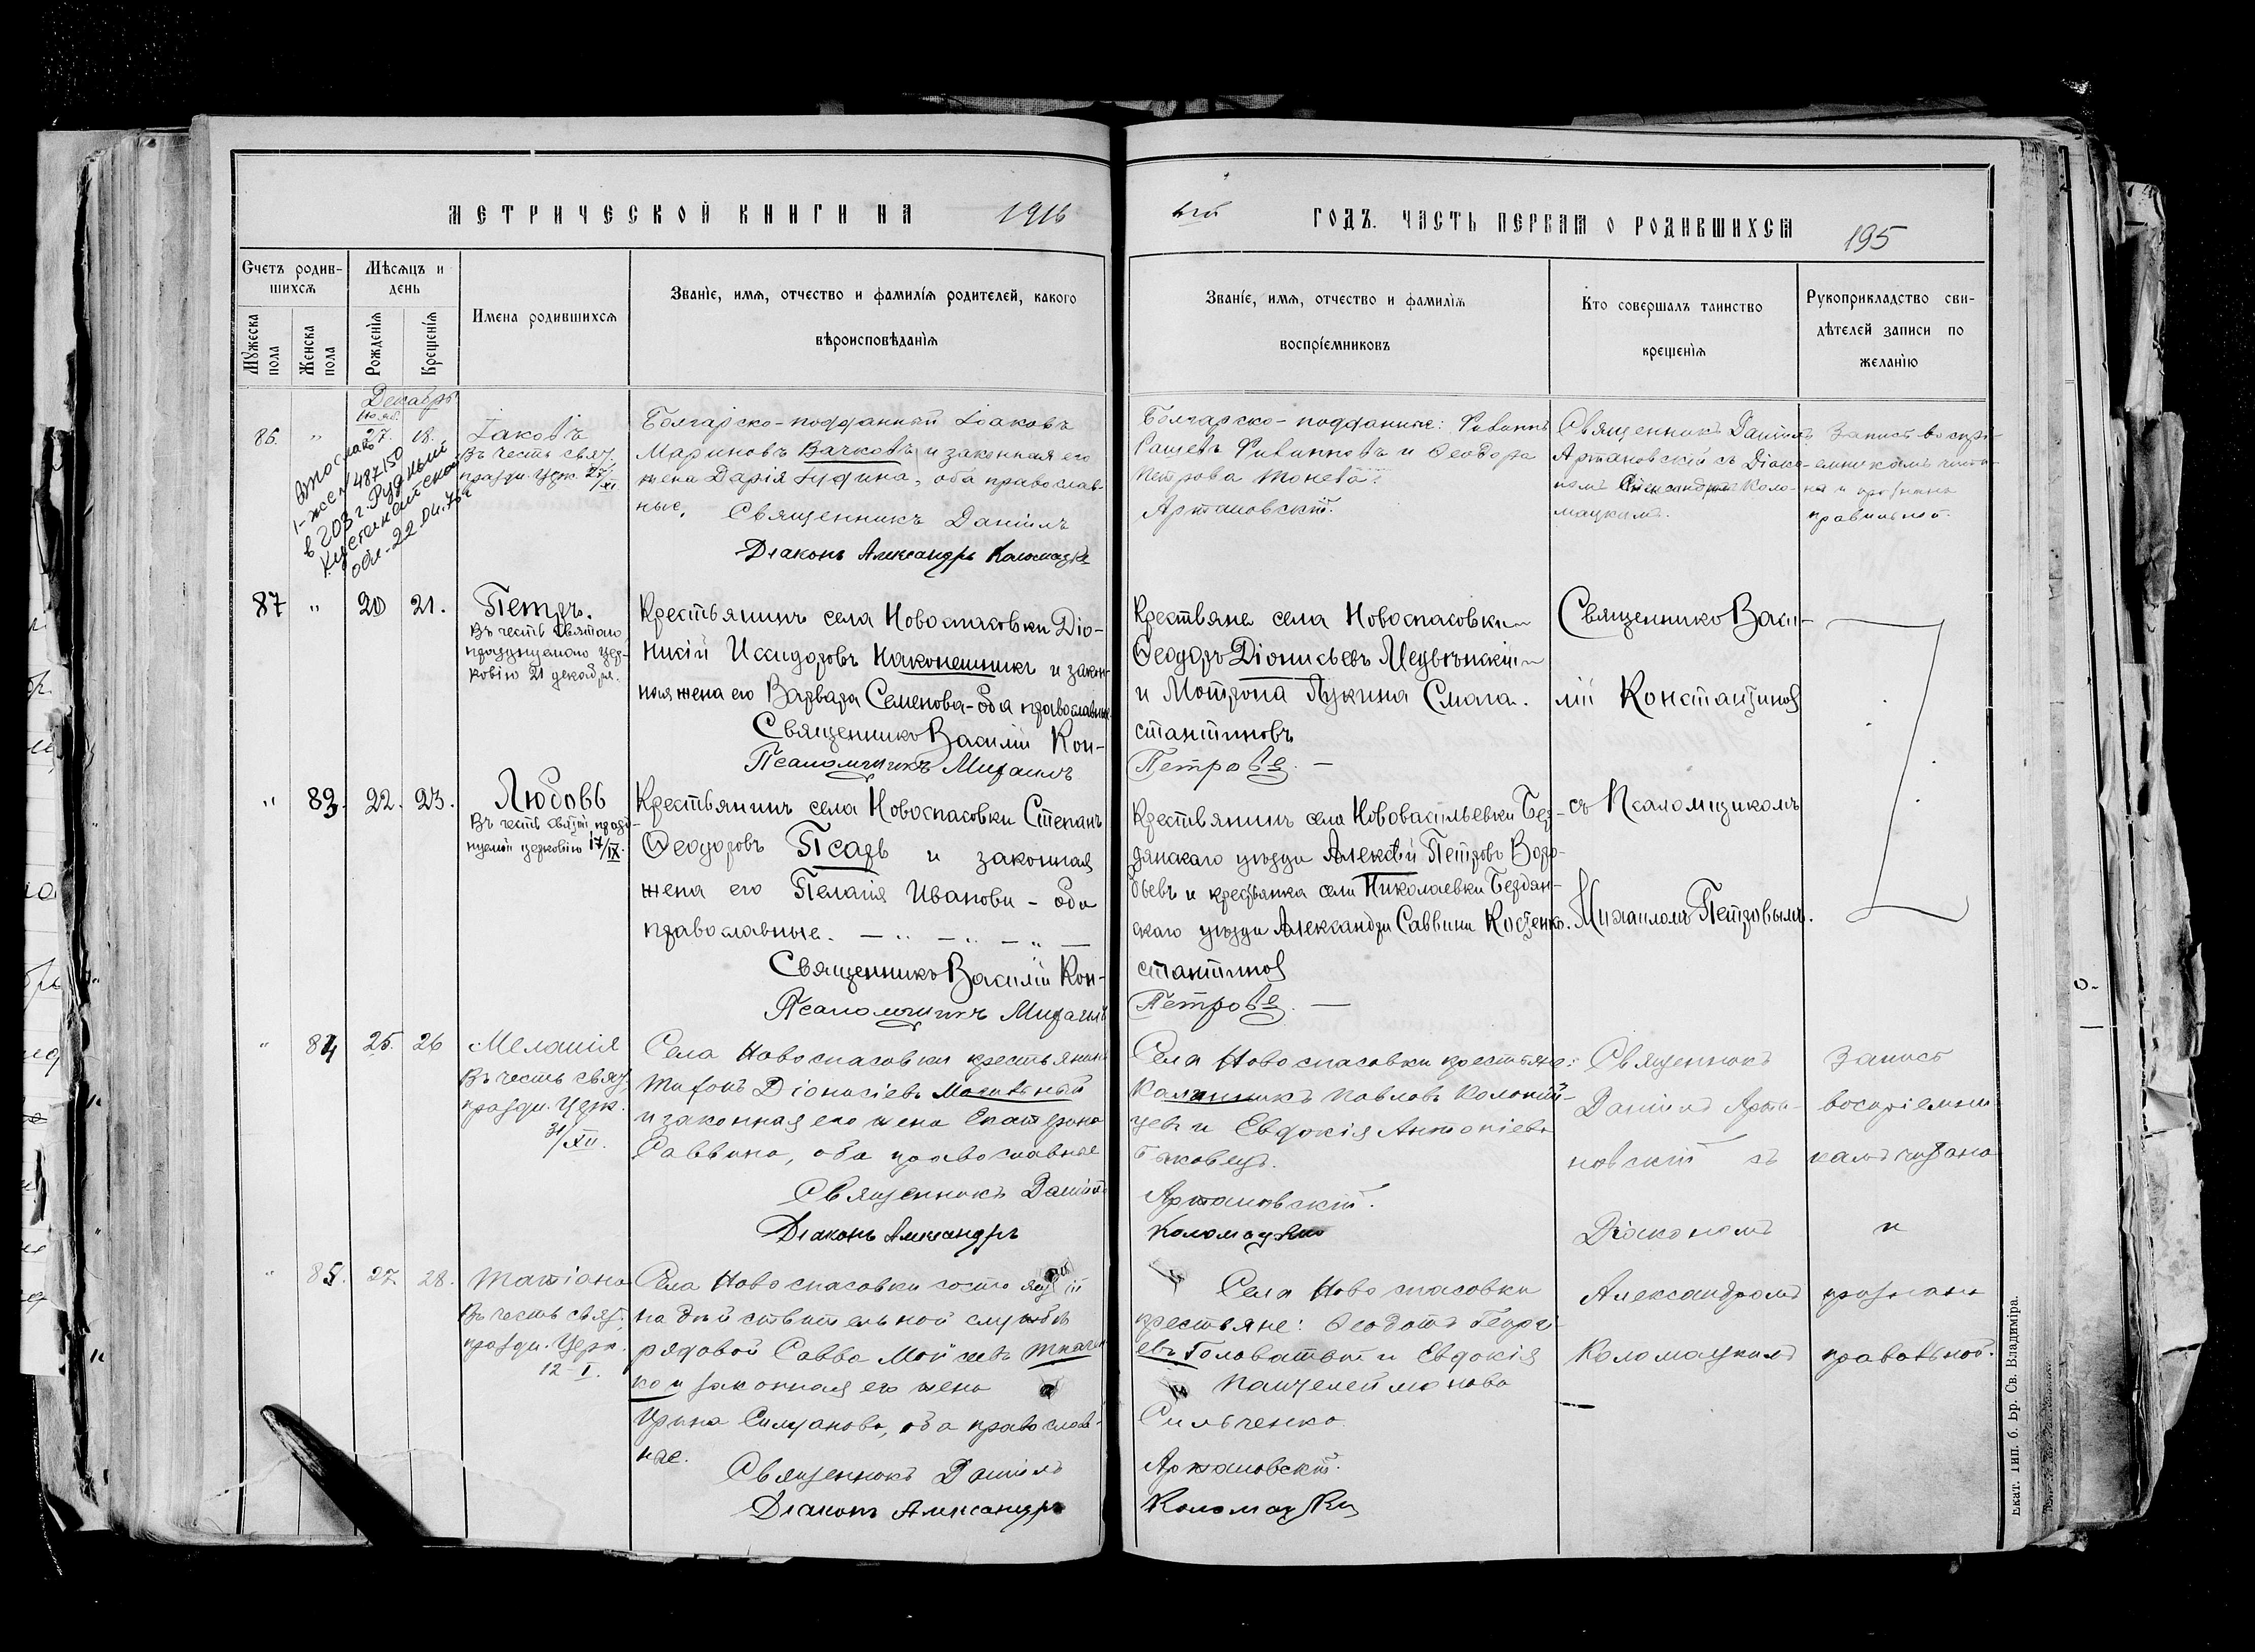 МЕТРИЧЕСКОЙ КНИГИ НА 1916
ый ГОДЪ. ЧАСТЬ ПЕРВАЯ О РОДИВШИХСЯ 195
Счетъ родив-
шихся
Мужеска пола
Женска пола
Мѣсяцъ и
день
Рожденія
Крещенія
Имена родившихся
Званіе, имя, отчество и фамилія родителей, какого
вѣроисповѣданія
Званіе, имя, отчество и фамилія
воспріемниковъ
Кто совершалъ таинство
крещенія
Рукоприкладство сви-
дѣтелей записи по
желанію
Декабрь
Нояб.
86. " 27. 18.
Іаковъ
Въ честь свят.
праздн. Церк. 27/XI
1-жс № 487150
в 203 г. Рудный
Кустанайской
обл-22.04.76г
Болгарско-подданный Іаковъ
Мариновъ Вачковъ и законная его
жена Дарія, оба православ-
ные. Священникъ Даніилъ
Діаконъ Александръ Коломацкій
Болгарско-подданные: Филиппъ
Рашевъ Филипповъ и Ѳеодора
Петрова Тонева.
Артановскій.
Священникъ Даніилъ
Артановскій съ Діако-
номъ Александромъ Коло-
мацкимъ.
Запись воспрі-
емникамъ чита-
на и признана
правильной.
87 " 20 21.
Петръ.
Въ честь святаго
празднуемаго цер-
ковію 21 декабря.
Крестьянинъ села Новоспасовки Діо-
нисій Исидоровъ Наконешникъ и закон-
ная жена его Варвара Семенова-оба православные
Священникъ Василій Кон-
Псаломщикъ Михаилъ
Крестьяне села Новоспасовки
Ѳеодоръ Діонисьевъ
и Мотрона Лукина Смага.
стантиновъ
Петровъ. —
Священникъ Васи-
лій Константинов
" 83. 22. 23.
Любовь
Въ честь святой празд-
нуемой церковію 17/IX.
Крестьянинъ села Новоспасовки Степанъ
Ѳеодоровъ Псарь и законная
жена его Пелагія Иванова - оба
православные. — " — " — " —
Священникъ Василій Кон-
Псаломщикъ Михаилъ
Крестьянинъ села Нововасильевки Бер-
дянскаго уѣзда Алексѣй Петровъ Воро-
бьевъ и крестьянка села Николаевки Бердян-
скаго уѣзда Александра Саввина Костенко.
стантинов
Петровъ. —
съ Псаломщикомъ
Михаиломъ Петровымъ.
" 84 25. 26
Меланія
Въ честь свят.
праздн. Церк.
31/XII.
Села Новоспасовки крестьянинъ
Тихонъ Діонисіевъ Могильный
и законная его жена Екатерина
Саввина, оба православные
Священникъ Даніилъ
Діаконъ Александръ
Села Новоспасовки крестьяне:
Калинникъ Павловъ Коломій-
цевъ и Евдокія Антоніева
Баковецъ.
Артановскій.
Коломацкій
Священникъ
Даніилъ Арта-
новскій съ
Діакономъ
Запись
воспріемни
камъ читана
и
" 85. 27. 28.
Татіана
Въ честь свят.
праздн. Церк.
12-I.
Села Новоспасовки состоящій
на дѣйствительной службѣ
рядовой Савва Моисеевъ Ткачен
ко и законная его жена
Ирина Силуанова, оба православ-
ные. Священникъ Даніилъ
Діаконъ Александръ
Села Новоспасовки
крестьяне: Ѳеодотъ Георгі-
евъ Головатый и Евдокія
Пантелеймонова
Сильченко.
Артановскій.
Коломацкій
Александромъ
Коломацкимъ
признана
правильной.
Екат. Тип. б. Бр. Св. Владиміра.